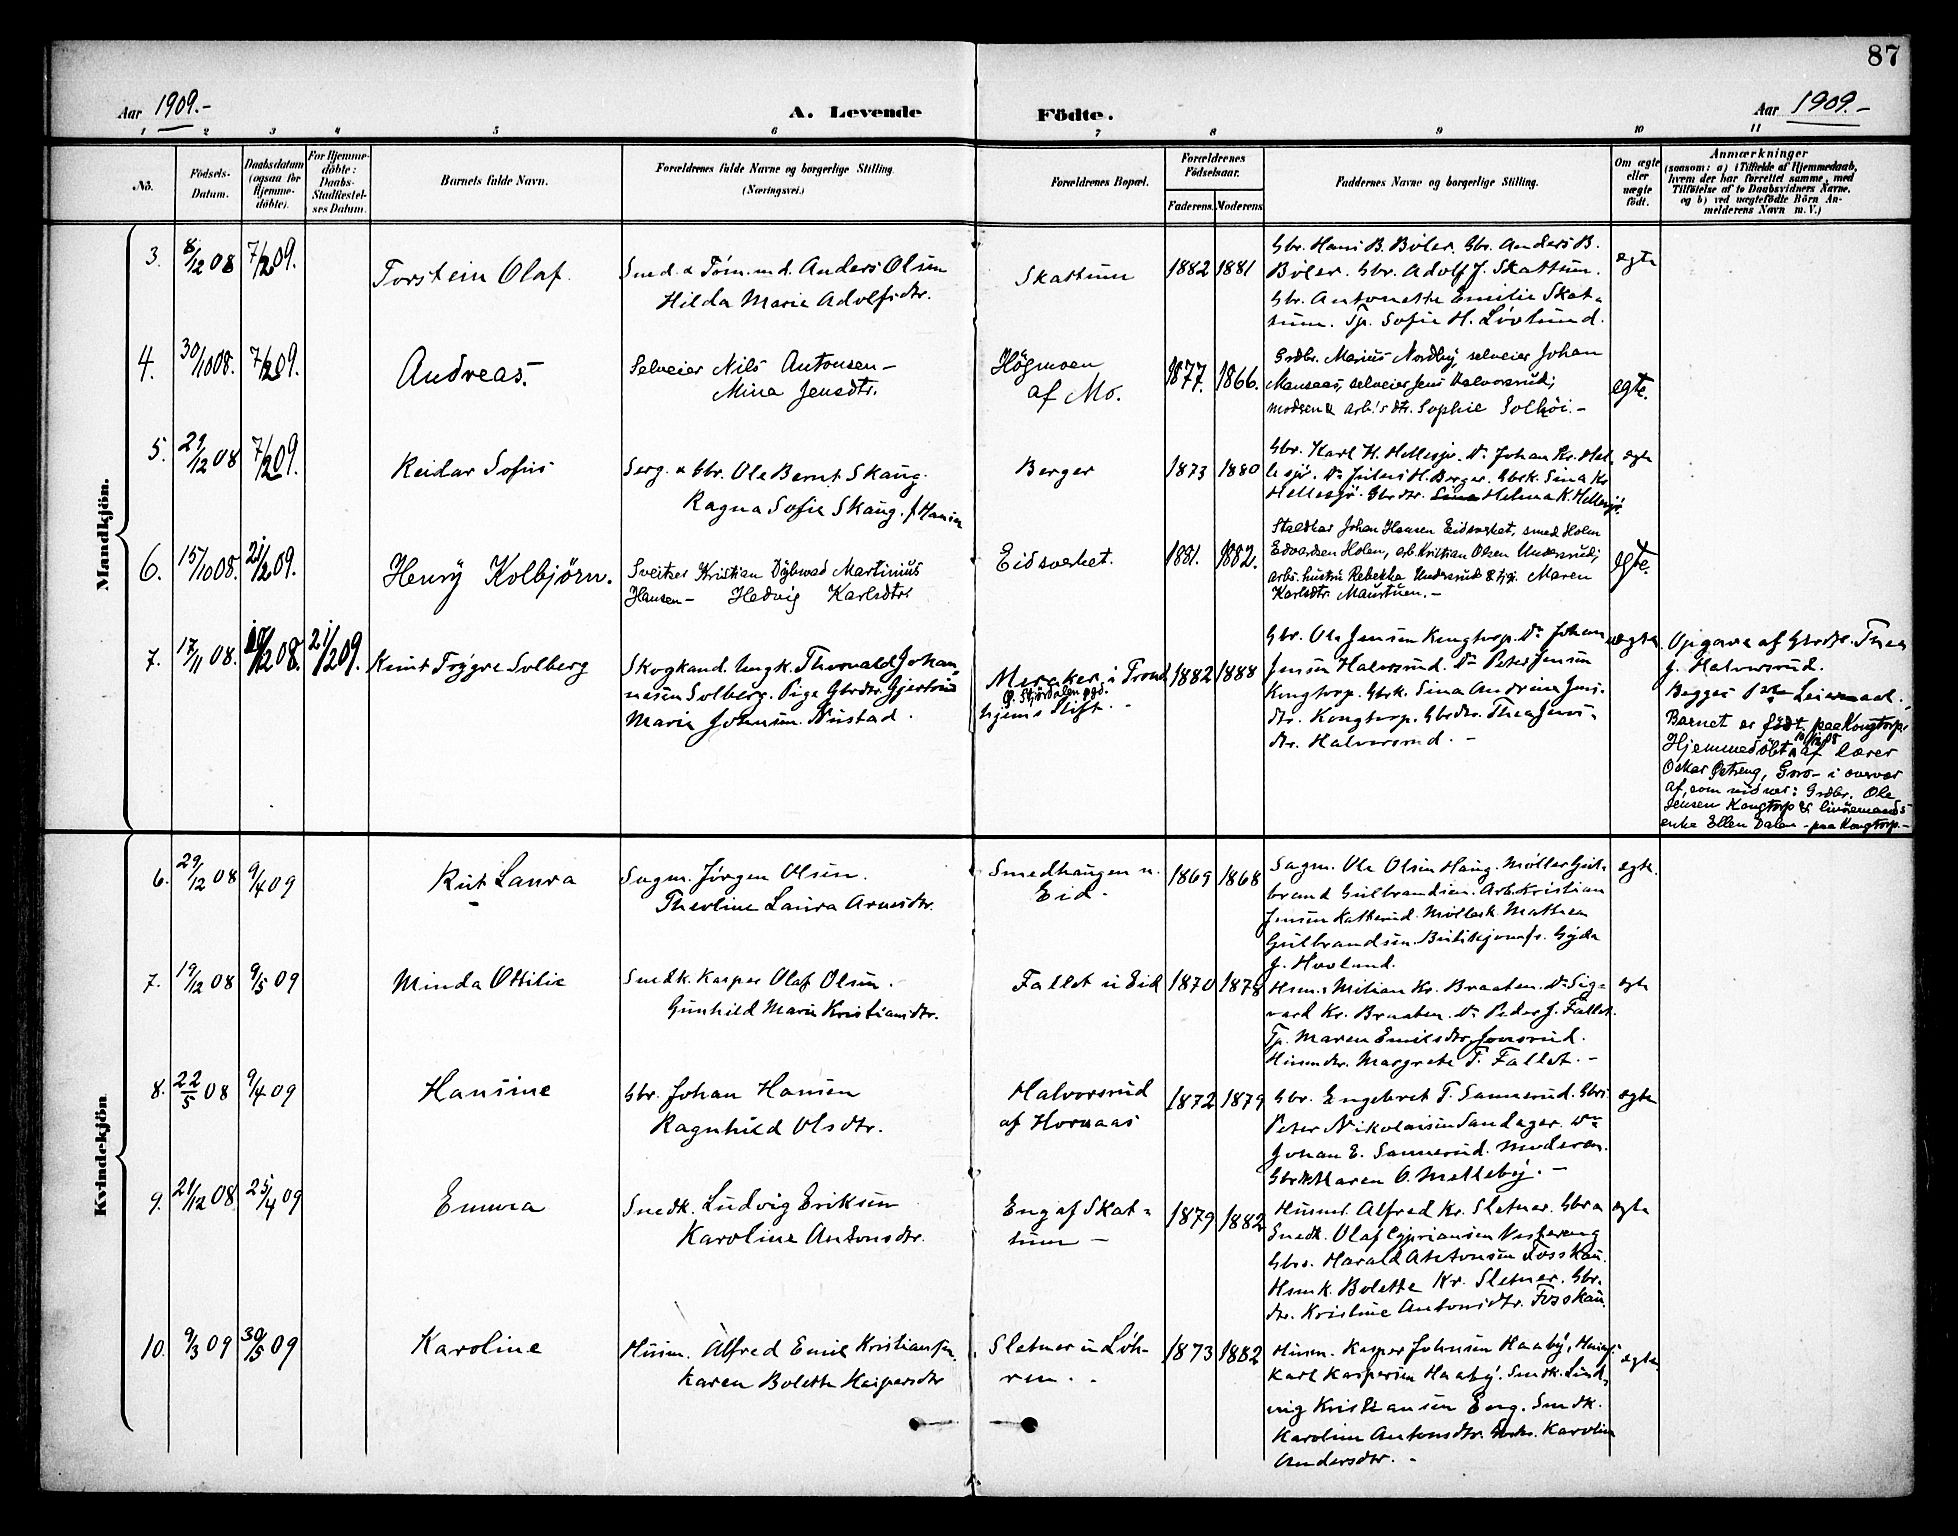 87
Aar 1909.-
A. Levende
Födte.
Aar 1909.-
1 2 3 4 5 6 7 8 9 10 11
No.
Födsels-
Datum.
Daabsdatum
(ogsaa for
Hjemme-
döbte).
For Hjemme-
döbte:
Daabs-
Stadfæstel-
ses Datum.
Barnets fulde Navn.
Forældrenes fulde Navne og borgerlige Stilling.
(Næringsvei.)
Forældrenes Bopæl.
Forældrenes
Födselsaar.
Faderens. Moderens.
Faddernes Navne og borgerlige Stilling.
Om ægte
eller
uægte
födt.
Anmærkninger
(saasom: a) i Tilfælde af Hjemmedaab,
hvem der har forrettet samme, med
Tilföielse af to Daabsvidners Navne,
og b) ved uægtefödte Börn An-
melderens Navn m. V.)
Mandkjön.
3. 8/12 08 7/2 09. Torstein Olaf.
Smed & Tøm.m.d. Anders Olsen
Hilda Marie Adolfsdtr.
Skattum 1882 1881
Gbr. Hans B. Bøler. Gbr. Anders B.
Bøler. Gbr. Adolf J. Skattum.
Gbr. Antonette Emilie Skat-
tum. Tp. Sofie H. Løvlund.
egte
4. 30/10 08. 7/2 09. Andreas.
Selveier Nils Antonsen -
Mina Jensdtr.
Högmoen
af Mo.
1877. 1866.
Grdbr. Marius Nordby, selveier Johan
Mansaas, selveier Jens Halvorsrud;
moderen & arb's dtr. Sophie Solhöi. -
egte.
5. 29/12 08 7/2 09. Reidar Sofus
Serg. & Gbr. Ole Bernt Skaug.
Ragna Sofie Skaug. f. Hansen
Berger 1873 1880
Gbr. Karl H. Hellesjø. Do Johan Kr. Hel-
lesjø. Do Julius H. Berger. Gbrk. Sina Kr
Hellesjö. Gbrdtr. Sina Helma K. Hellesjö.
egte
6. 15/10 08. 21/2 09. Henrÿ Kolbjørn.
Sveitser Kristian Dybwad Martinius
Hansen - Hedvig Karlsdtr
Eidsverket. 1881. 1882.
Staldkar Johan Hansen Eidsverket, smed Holm
Edvardsen Holen, arb. Kristian Olsen Undersrud;
arbs. hustru Rebekka Undersrud & tj.pi. Maren
Karlsdtr. Maurtuen. -
egte.
7. 17/11 08. 10/12 08. 21/2 09. Knut Trygve Solberg
Skogkand. Ungk. Thorvald Johan-
nesen Solberg. Pige Gbrdtr. Gjertrud
Marie Johnsen Nustad.
Meraker i Trond
Ø. Stjørdalen pgd.
hjems Stift. -
1882 1888
Gbr. Ole Jensen Kongtorp. Do Johan
Jensen Halvorsrud. Do Peter Jensen
Kongtorp. Gbrk. Sina Andrine Jens-
dtr. Kongtorp. Gbrdtr. Thea Jens-
dtr. Halvorsrud. -
uegte
Opgave af Gbrdtr. Thea
J. Halvorsrud.
Begges 1ste Leiermaal.
Barnet er födt paa Kongtorp.
Hjemmedöbt 10/12 08 af lærer
Oskar Østreng, Gros- i overvær
af, som vidner: Grdbr. Ole
Jensen Kongtorp & linöemands
enke Ellen Dalen - paa Kongtorp. -
Kvindekjön
6. 29/12 08 9/4 09 Rut Laura
Sagm. Jørgen Olsen.
Theoline Laura Arnesdtr.
Smedhaugen u.
Eid.
1869 1868
Sagm. Ole Olsen Haug. Møller Gul-
brand Gulbrandsen. Arb. Kristian
Jensen Katterud. Møllerk. Mathea
Gulbrandsen. Butikjomfr. Gyda
J. Hovland.
egte.
7. 19/12 08 9/5 09 Minda Ottilie
Smedk. Kasper Olaf Olsen.
Gunhild Marie Kristiansdtr.
Fallet u Eid 1870 1878
Hsm. Milian Kr. Braaten. Do Sig-
vard Kr. Braaten. Do Peder J. Fallet.
Tp. Maren Emilsdtr. Jonsrud.
Husmdtr. Margrete T. Fallet. -
egte
8. 22/5 08 9/4 09 Hansine
Gbr. Johan Hansen
Ragnhild Olsdtr.
Halvorsrud
af Hornaas
1872 1879
Gbr. Engebret T. Sannerud. Gbrs.
Peter Nikolaisen Sandager. Do
Johan E. Sannerud. Moderen.
Gbrdtr. Maren O. Melleby. -
egte
9. 21/12 08 25/4 09 Emma
Smedk. Ludvig Eriksen
Karoline Antonsdtr.
Eng af Skat-
tum -
1879 1882
Husm. Alfred Kr. Sletner. Gbrs
Smedk. Olaf Cypriansen Vestereng
Gbrs. Harald Antonsen Fosskau.
Hsmk. Bolette Kr. Sletner. Gbr.
dtr. Kristine Antonsdtr. Fosskau.
egte
10. 9/3 09 30/5 09 Karoline
Husm. Alfred Emil Kristiansen.
Karen Bolette Kaspersdtr
Sletner u Løh-
ren. -
1873 1882
Husm. Kasper Johnsen Haaby,
Karl Kaspersen Haaby. Smedk. Lud-
vig Kristiansen Eng. Smedk.
Karoline Antonsdtr. Karoline
Andersdtr. -
egte.